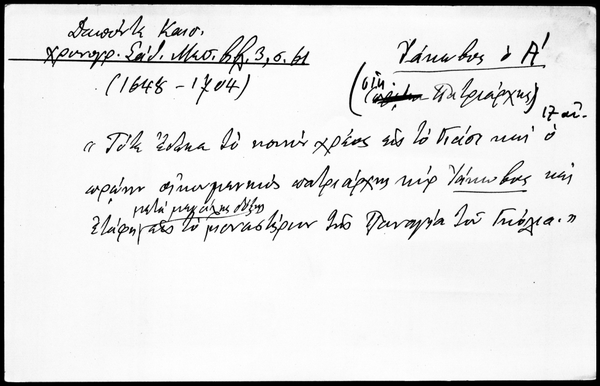 Δαπόντε Καισ.
χρονογρ. Σάθ. Μεσ. βιβλ. 3, σ. 61
(1648 - 1704)
Ἰάκωβος ὁ Α'
(οἰκ. Πατριάρχης)
17 αἰ.
« Τότε ἔσκασε τὸ κοινὸν χρέος εἰς τὸ Γιάσι καὶ ὁ
πρώην οἰκουμενικὸς πατριάρχης κὺρ Ἰάκωβος καὶ
μετὰ μεγάλης δόξης
ἐτάφη εἰς τὸ μοναστήριον τῆς Παναγίας τοῦ Γκόλια. »